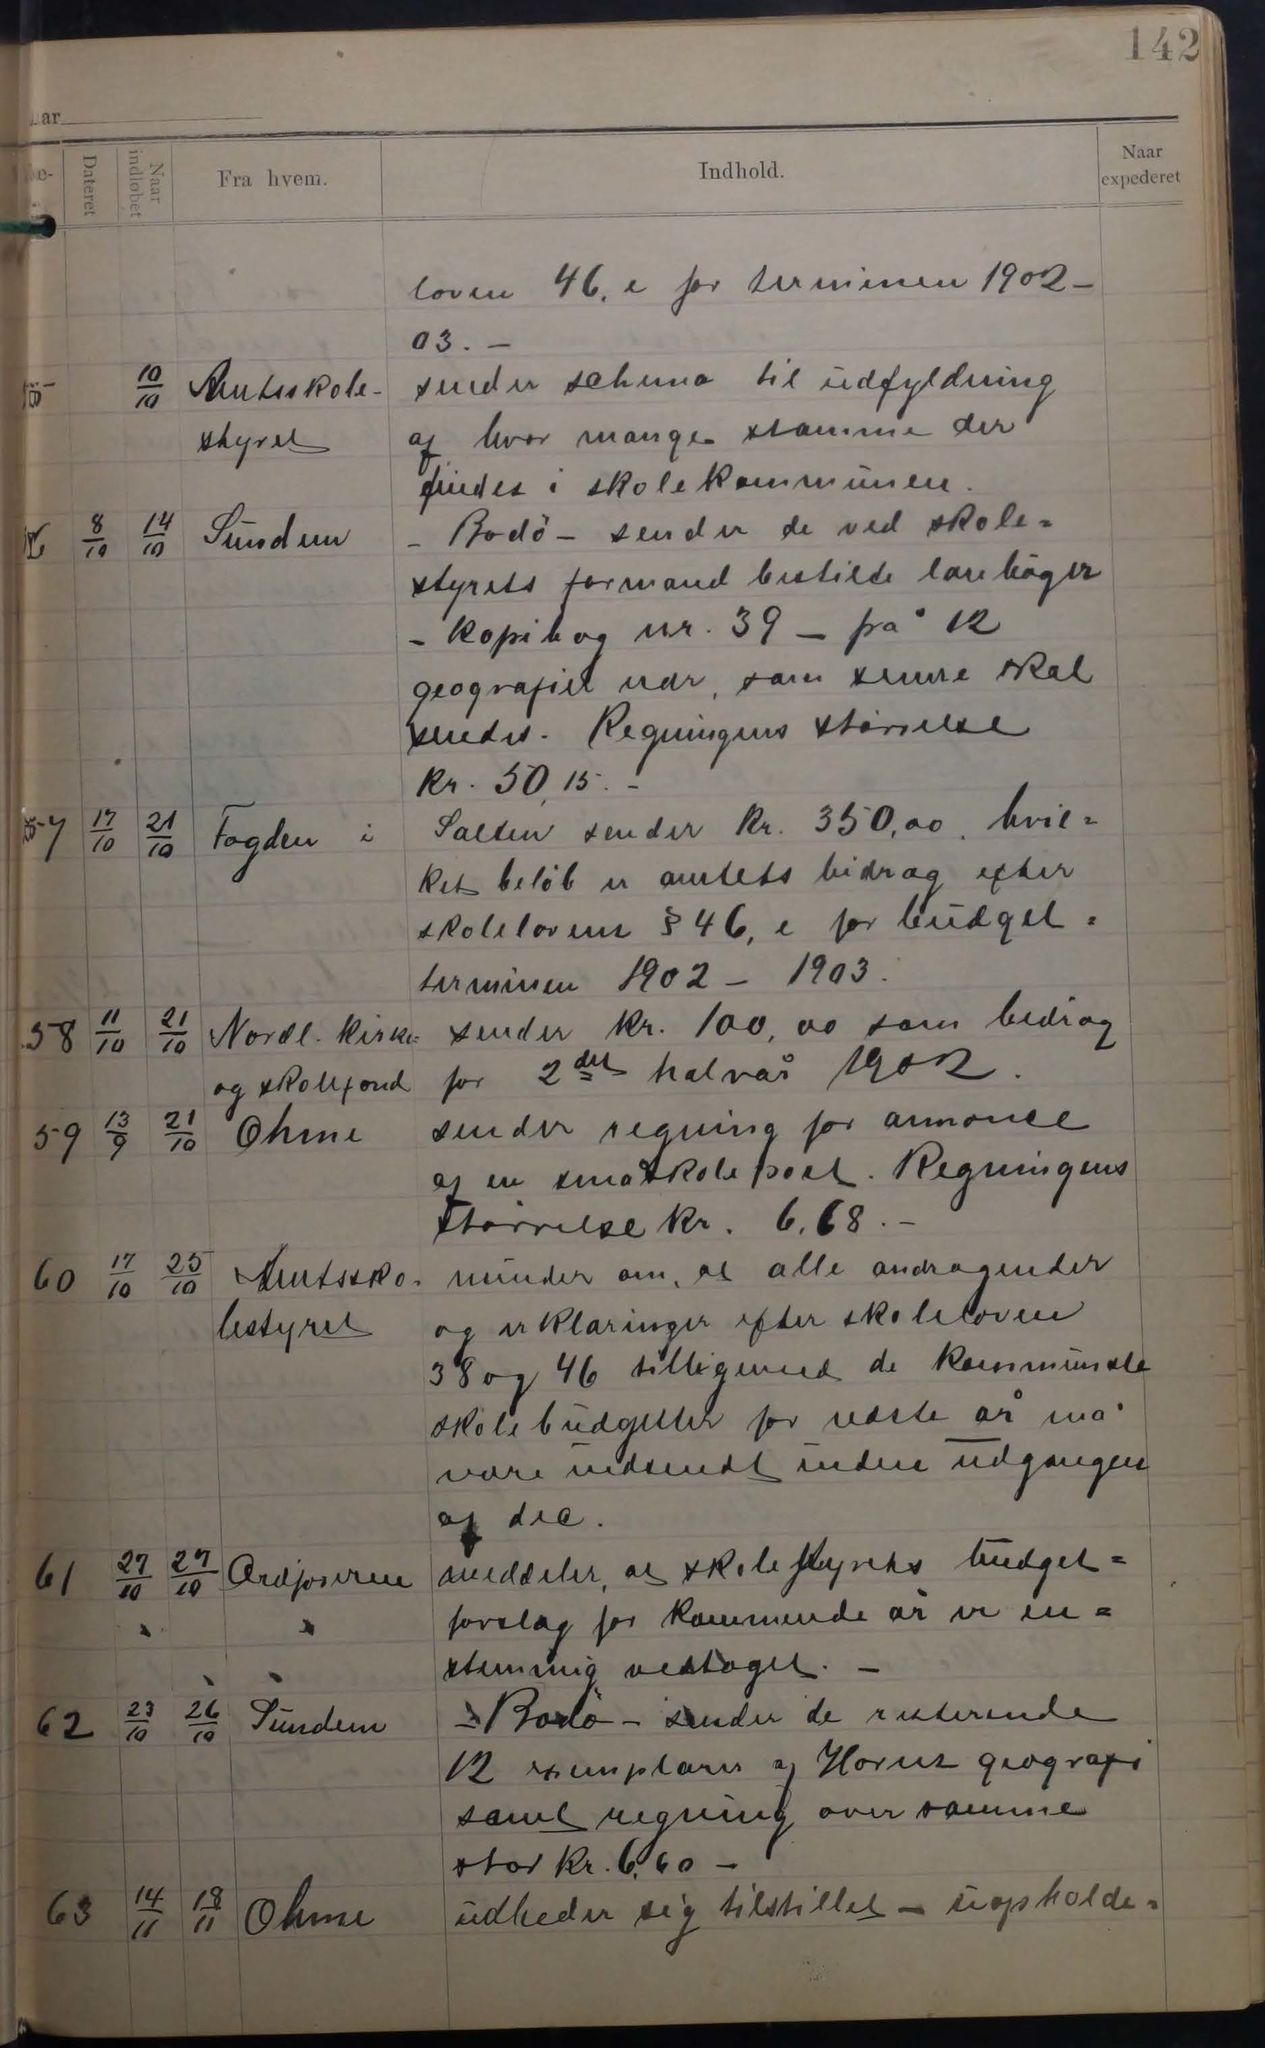 142
aar
Dateret
Naar indløbet
Fra hvem.
Indhold.
Naar expederet
loven 46, e for terminen 1902 –
03. –
10/10 Amtsskole- sender schema til udfyldning
styret af hvor mange stamme der
findes i skolekommunen.
8/10 14/10 Sundem – Bodö – sender de ved skole=
styrets formand bestilte lærebøger
– kopibog nr. 39 – på 12
geografier nær, som senere skal
sendes. Regningens størrelse
kr. 50,15. –
57 17/10 21/10 Fogden i Salten sender kr. 350,00, hvil=
ket beløb er amtets bidrag efter
skolelovens § 46, e for budget=
terminen 1902 – 1903.
58 11/10 21/10 Nordl. kirke= sender kr. 100,00 som bedrag
og skolefond for 2det halvår 1902.
59 13/9 21/10 Ohme sender regning for annonce
af en småskolepost. Regningens
størrelse kr. 6,68. –
60 17/10 25/10 Amtssko- minder om, at alle andragender
lestyret og erklæringer efter skoleloven
38 og 46 tilligemed de kommunale
skolebudgetter for næste år må
være indsendt inden udgangen
af dec.
61 27/10 27/10 Ordføreren meddeler, at skolestyrets budget=
forslag for kommende år er en=
stemmig vedtaget. –
62 23/10 26/10 Sundem – Bodö – sender de resterende
12 exemplarer af Horns geografi
samt regning over samme
stor kr. 6,60 –
63 14/11 18/11 Ohme udbeder sig tilstillet – uopholde=